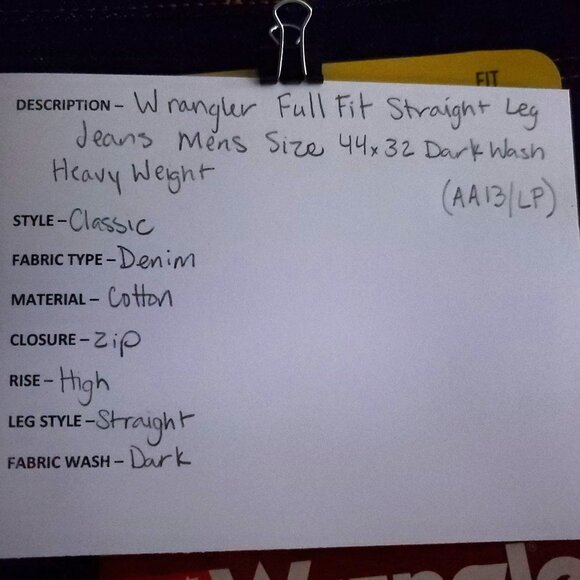 FIT
DESCRIPTION – Wrangler Full Fit Straight Leg
Jeans Mens Size 44x32 Dark Wash
Heavy Weight
(AA13/LP)
STYLE – Classic
FABRIC TYPE – Denim
MATERIAL – Cotton
CLOSURE – Zip
RISE – High
LEG STYLE – Straight
FABRIC WASH – Dark
Wrangle